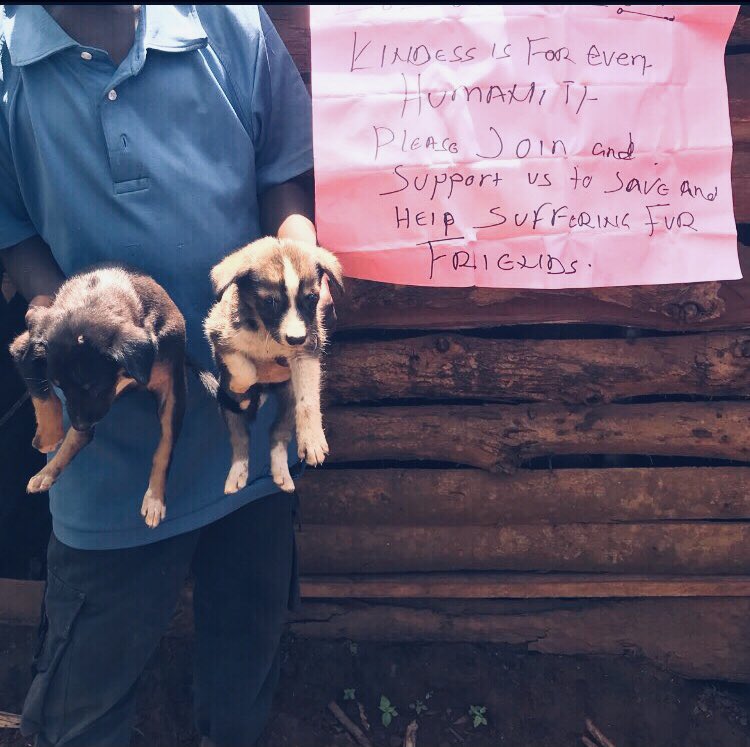 KINDESS is For every
HUMANITY
PLEASE JOIN and
Support us to Save and
HElp SUFFERING FUR
FRIENDS.